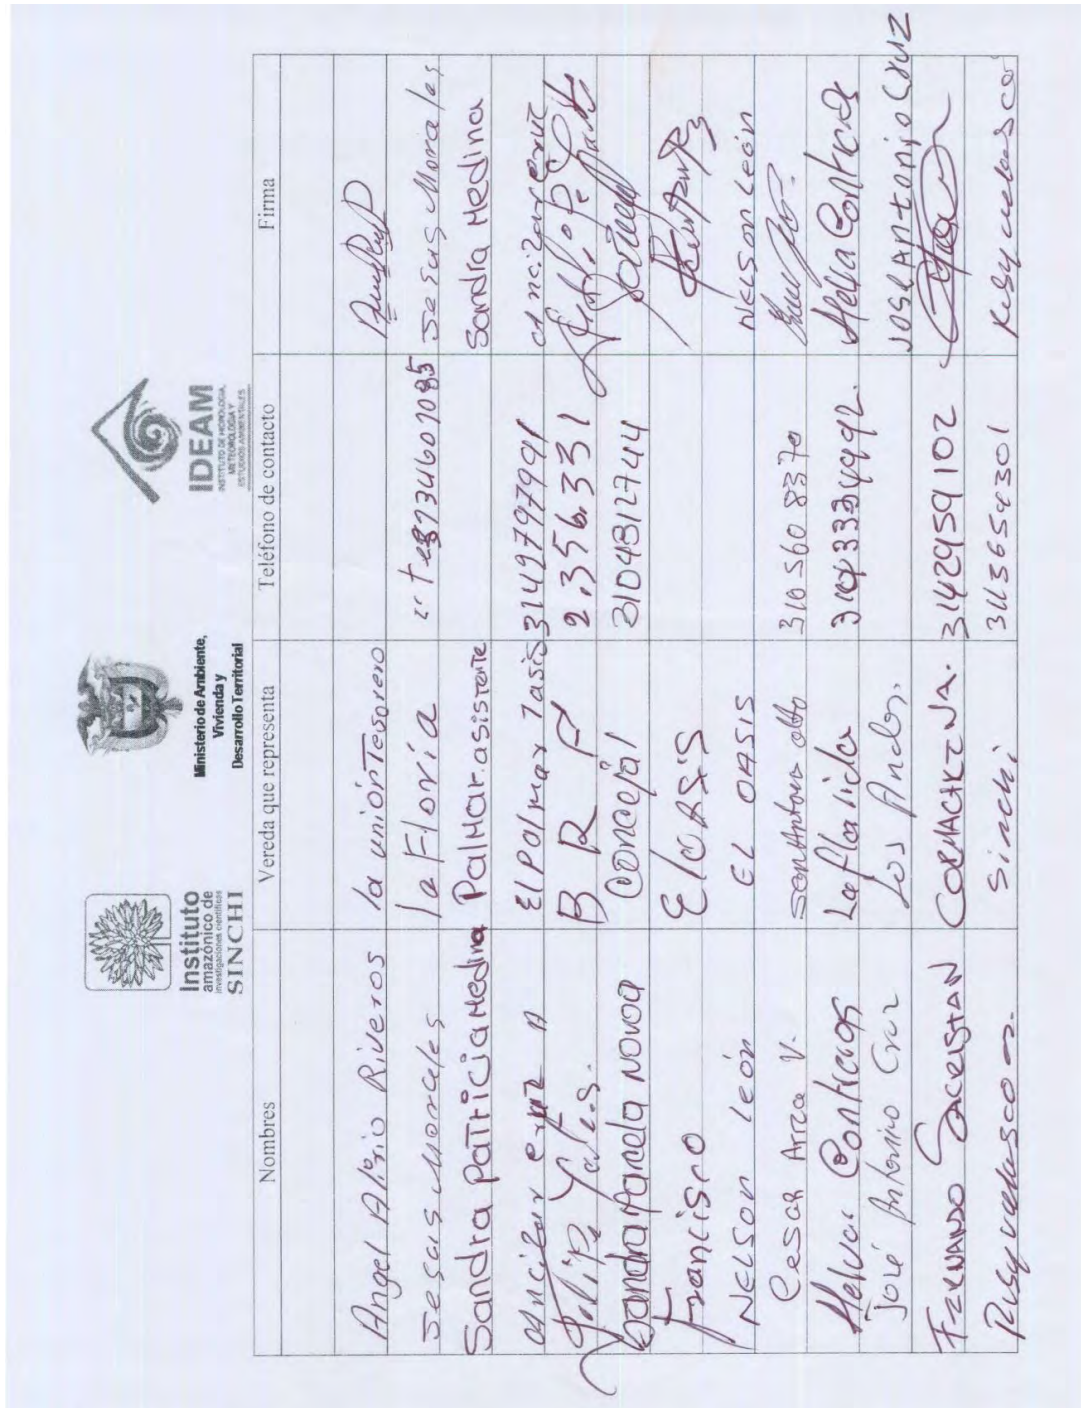 Instituto
amazónico de
investigaciones científicas
SINCHI
Ministerio de Ambiente,
Vivienda y
Desarrollo Territorial
IDEAM
INSTITUTO DE HIDROLOGÍA,
METEOROLOGÍA Y
ESTUDIOS AMBIENTALES
Nombres Vereda que representa Teléfono de contacto Firma
Angel Alirio Riveros la unión Tesorero
Jesus Morales la Floria Jesus Morales
Sandra Patricia Medina Palmar. asistente Sandra Medina
El Palmar 3149797991
Felipe B R P 2.356.331
Sandra Marcela Novoa Concejal 3104812744
Francisco El OASIS
Nelson león EL OASIS Nelson León
Cesar Arza V. San Antonio alto 310 560 8370
Helva Contreras La florida Helva Contreras
José Antonio Cruz Los Andes. José Antonio Cruz
FERNANDO CORMACARENA. 3142959102
Rusy velasco Sinchi 3113654301 Rusy velasco